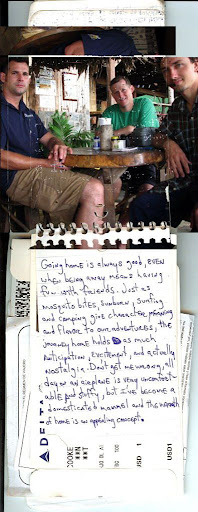 Going home is always good, even
when being away means having
fun with friends. Just as
mosquito bites, sunburn, surfing
and camping give character, meaning
and flavor to our adventures, the
journey home holds as much
anticipation, excitement, and actually
nostalgia. Don't get me wrong, all
day on an airplane is very uncomfort-
able and stuffy, but I've become a
domesticated mammal and the warmth
of home is an appealing concept.
DELTA
USD1
USD1